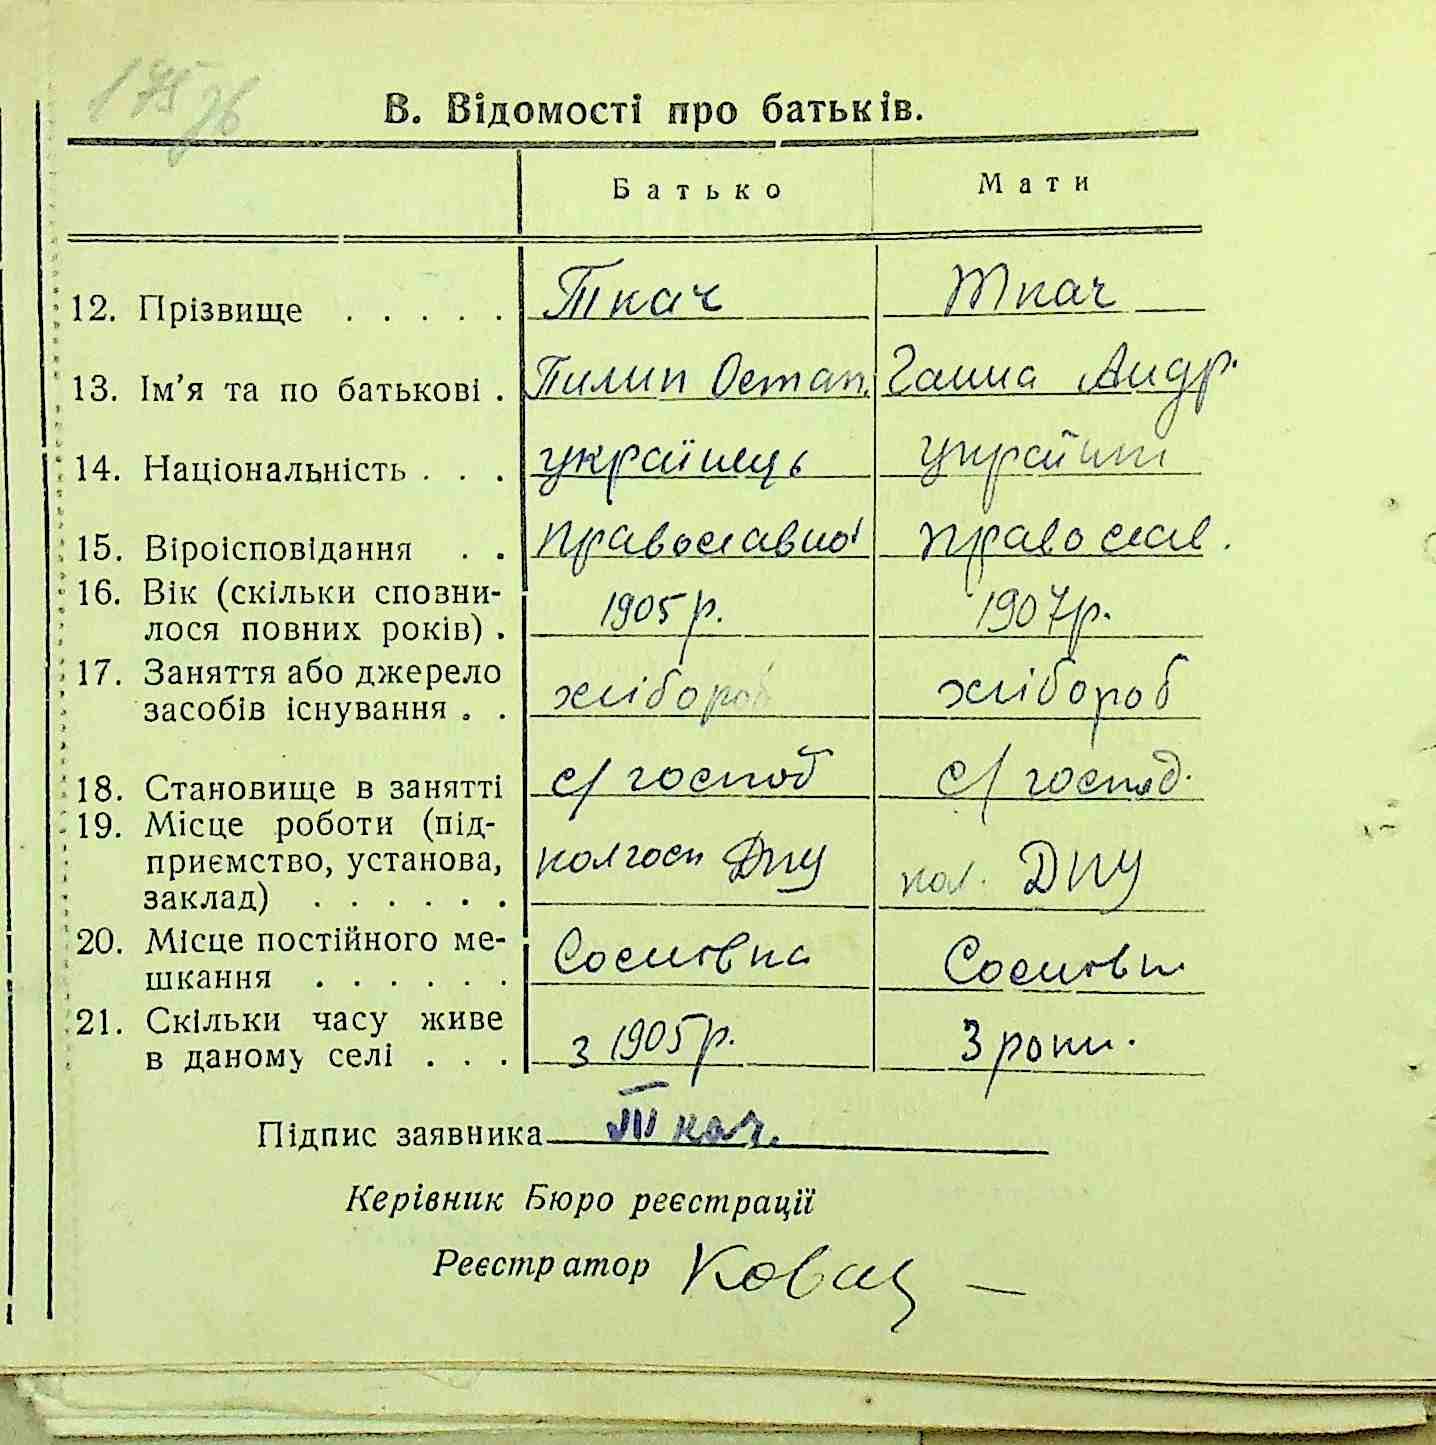 175
В. Відомості про батьків.
Батько Мати
12. Прізвище . . . . . Ткач Ткач
13. Ім’я та по батькові . Пилип Остап. Ганна Андр.
14. Національність . . . українець україн
15. Віроісповідання . . православної православ.
16. Вік (скільки сповни-
лося повних років) . 1905 р. 1907 р.
17. Заняття або джерело
засобів існування . . хлібороб хлібороб
18. Становище в занятті с/господ с/господ.
19. Місце роботи (під-
приємство, установа, колгосп ДПУ кол. ДПУ
заклад) . . . . . .
20. Місце постійного ме- Сосновка Сосновк
шкання . . . . . .
21. Скільки часу живе
в даному селі . . . з 1905 р. 3 роки.
Підпис заявника Ткач.
Керівник Бюро реєстрації
Реєстратор